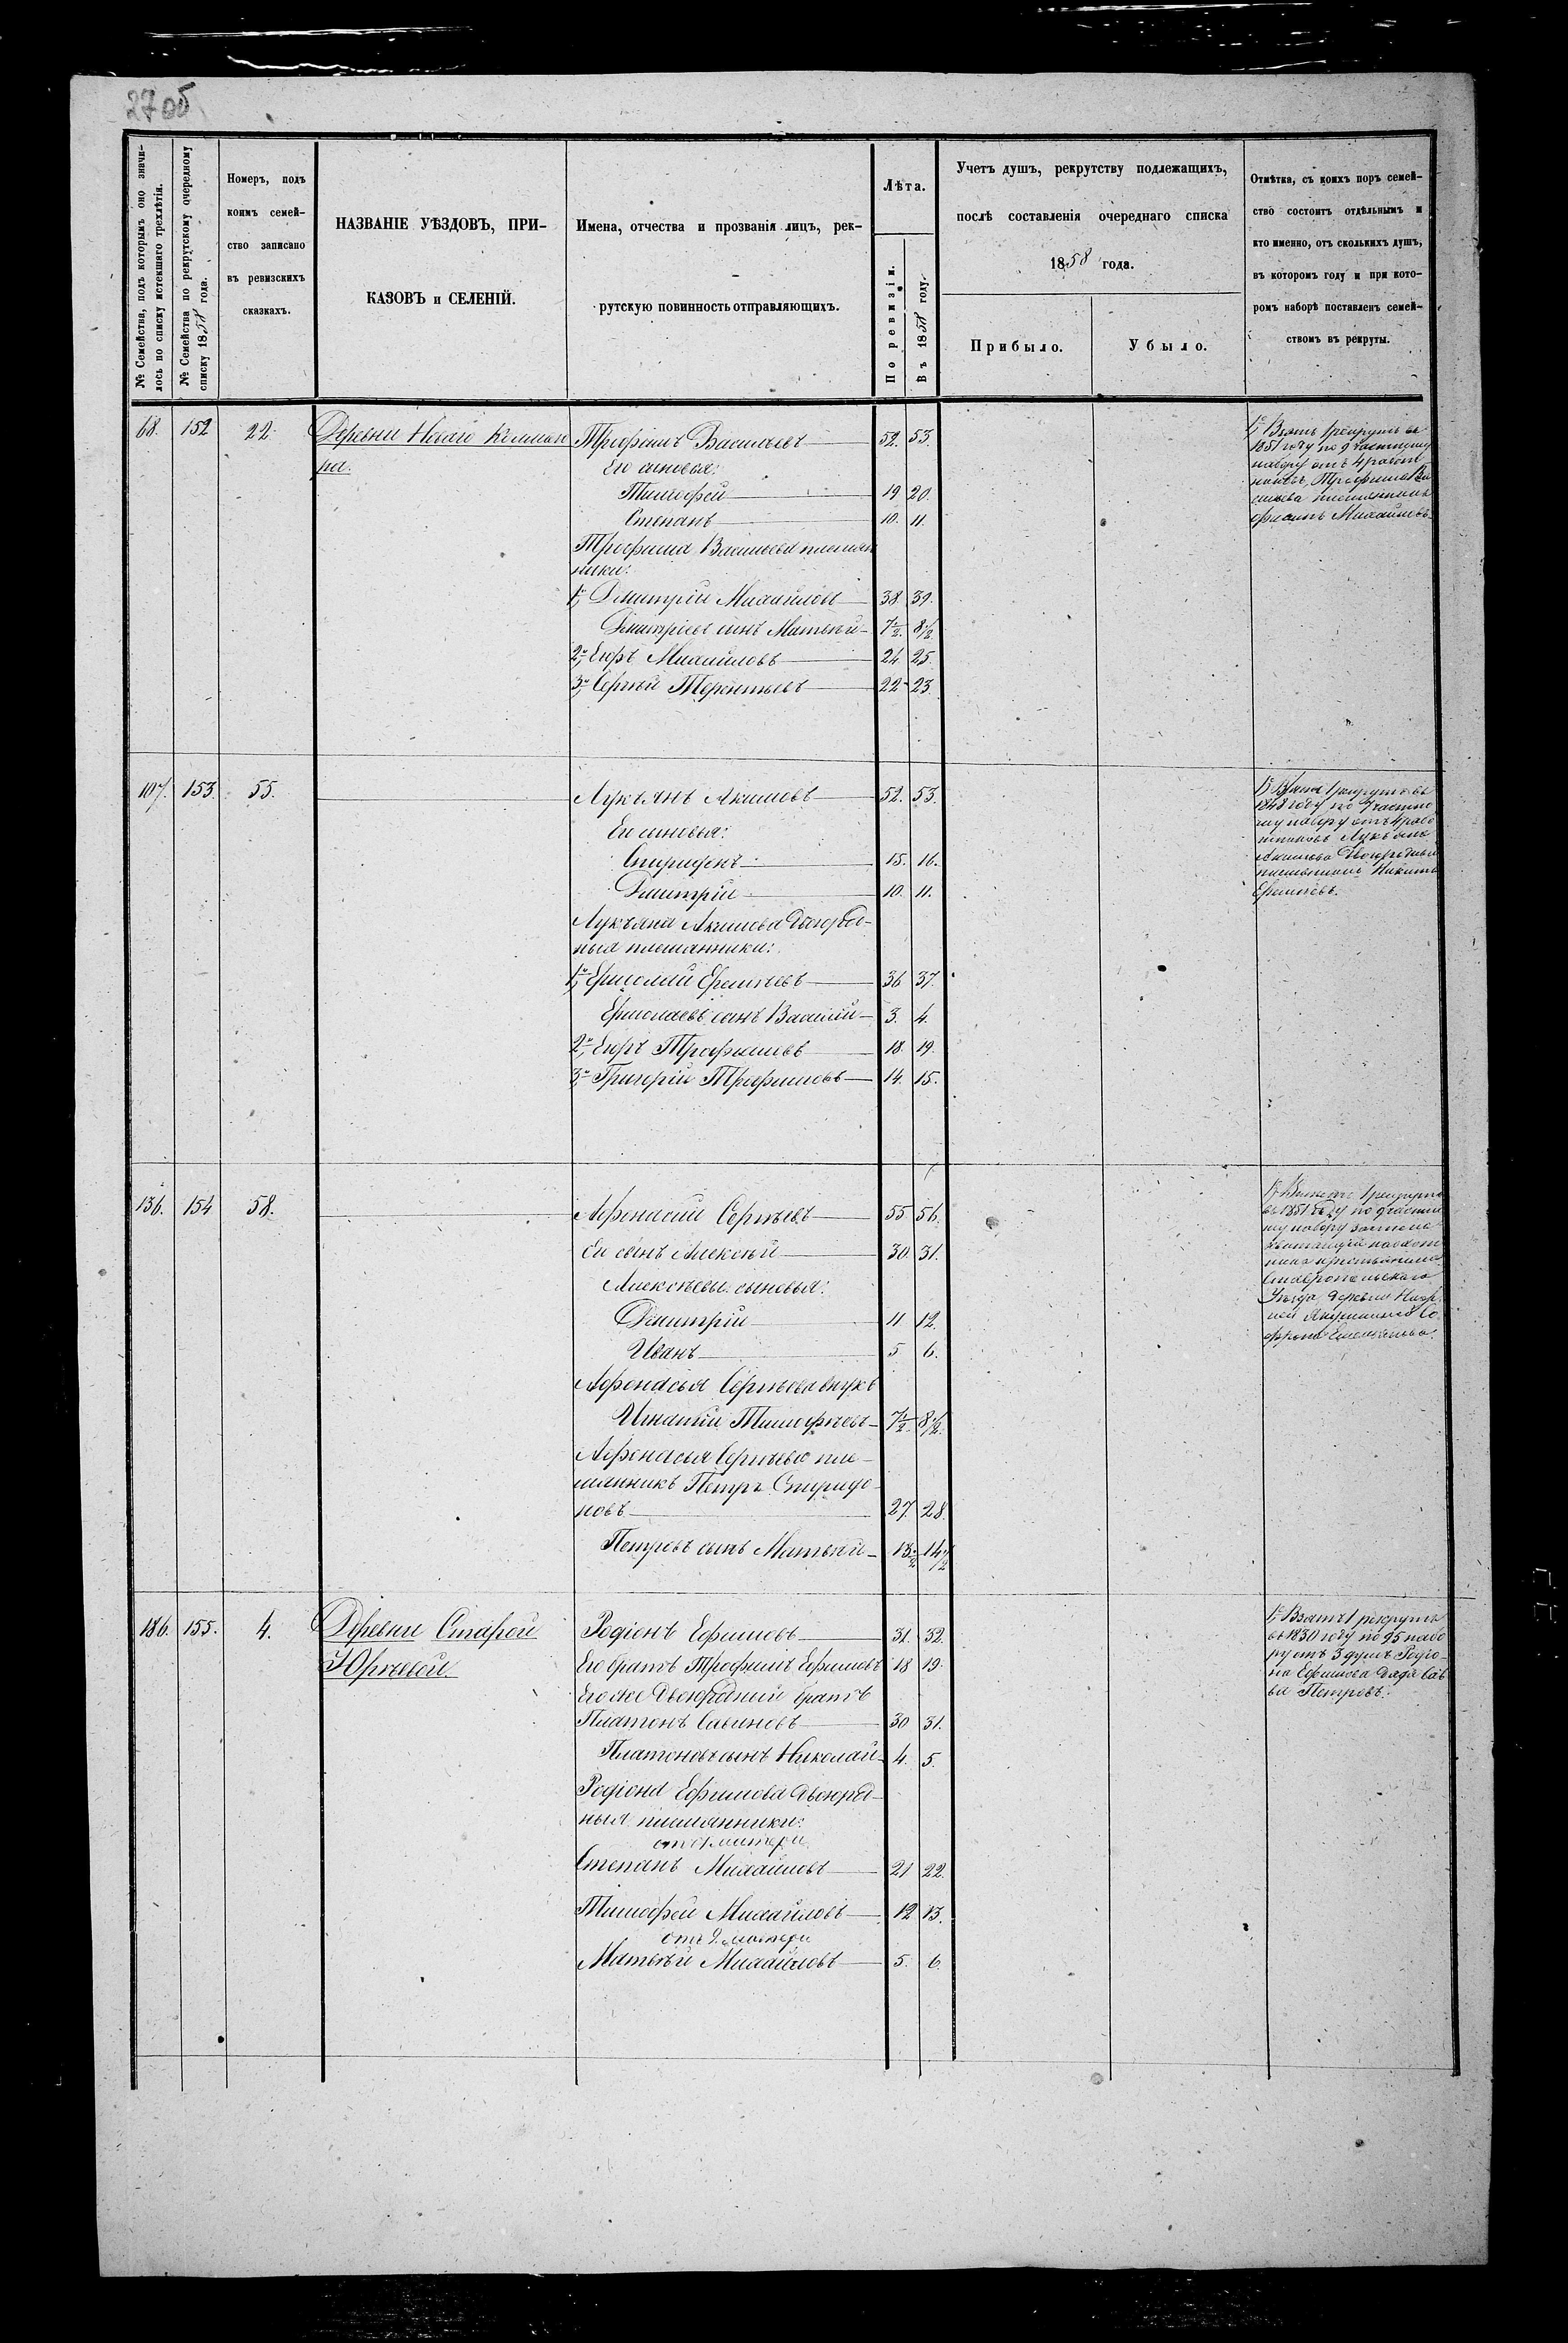 27об
№ Семейства, подъ которымъ оно значи-
лось по списку истекшаго трехлѣтія.
№ Семейства по рекрутскому очередному
списку 1858 года.
Номеръ, подъ
коимъ семей-
ство записано
въ ревизскихъ
сказкахъ.
НАЗВАНІЕ УѢЗДОВЪ, ПРИ-
КАЗОВЪ и СЕЛЕНІЙ.
Имена, отчества и прозванія лицъ, рек-
рутскую повинность отправляющихъ.
Лѣта.
По ревизіи.
Въ 1858 году.
Учетъ душъ, рекрутству подлежащихъ,
послѣ составленія очереднаго списка
1858 года.
Прибыло.
Убыло.
Отмѣтка, съ коихъ поръ семей-
ство состоитъ отдѣльнымъ и
кто именно, отъ сколькихъ душъ,
въ которомъ году и при кото-
ромъ наборѣ поставленъ семей-
ствомъ въ рекруты.
68. 152 22. Деревни Новаго Трофимъ Васильевъ 52. 53.
ра.
Его сыновья:
Тимофей 19 20.
Степанъ 10. 11.
Трофима Васильева племян
ники:
1, Дмитрій Михайловъ 38. 39.
Дмитріевъ сынъ Матвѣй 7½. 8½.
2, Егоръ Михайловъ 24 25.
3, Сергѣй Терентьевъ 22 23.
Взятъ 1 рекрутъ въ
1851 году по 9 частному
набору отъ 4 работ
никовъ, Трофима Ва
сильева племянникъ
Михайловъ
107. 153. 55. Лукъянъ Акимовъ 52. 53.
Его сыновья:
Спиридонъ 15. 16.
Дмитрій 10. 11.
Лукъяна Акимова двоюрод-
ныя племянники:
1, Ермолай Еремѣевъ 36 37.
Ермолаевъ сынъ Василій 3. 4.
2, Егоръ Трофимовъ 18. 19.
3, Григорій Трофимовъ 14. 15.
1 рекрутъ въ
1848 году по 7 частно
му набору отъ 4 рабо
тниковъ Лукъяна
Акимова двоюродный
племянникъ Никита
Еремѣевъ.
136. 154 58. Афонасій Сергѣевъ 55 56.
Его сынъ Алексѣй 30. 31.
Алексѣевы сыновья:
Дмитрій 11 12.
Иванъ 5 6.
Афонасья Сергѣева внукъ
Игнатій Тимофѣевъ 7½. 8½.
Афонасья Сергѣева пле-
мянникъ Петръ Спиридо
новъ 27. 28.
Петровъ сынъ Матвѣй 13½ 14½
1 рекрутъ
въ 1851 году по 9 частно
му набору
крестьянина
Ставропольскаго
Уѣзда, деревни
186. 155. 4. Деревни Старой Родіонъ Ефимовъ 31. 32.
Юрѣевой Его братъ Трофимъ Ефимовъ 18 19.
Его же двоюродный братъ
Платонъ Савиновъ 30 31.
Платоновъ сынъ Николай 4. 5.
Родіона Ефимова двоюрод-
ныя племянники:
отъ 1 матери
Степанъ Михайловъ 21 22.
Тимофей Михайловъ 12 13.
отъ 2 матери
Матвѣй Михайловъ 5. 6.
Взятъ 1 рекрутъ
въ 1830 году по 95 набо
ру отъ 3 душъ Родіо-
на Ефимова дядя Сав
ва Петровъ.